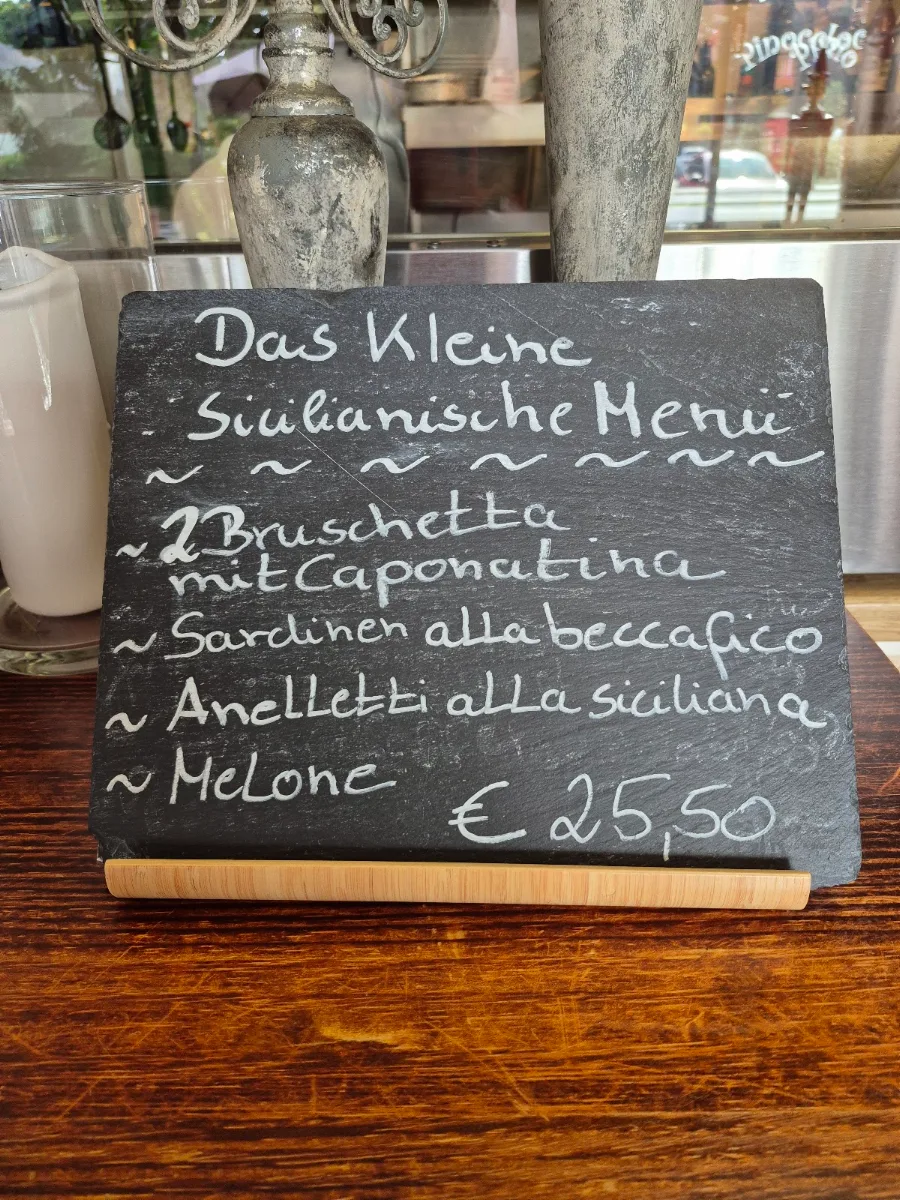 Das Kleine
Sicilianische Menü
~ ~ ~ ~ ~ ~ ~
~ 2 Bruschetta
mit Caponatina
~ Sardinen alla beccafico
~ Anelletti alla siciliana
~ Melone
€ 25,50